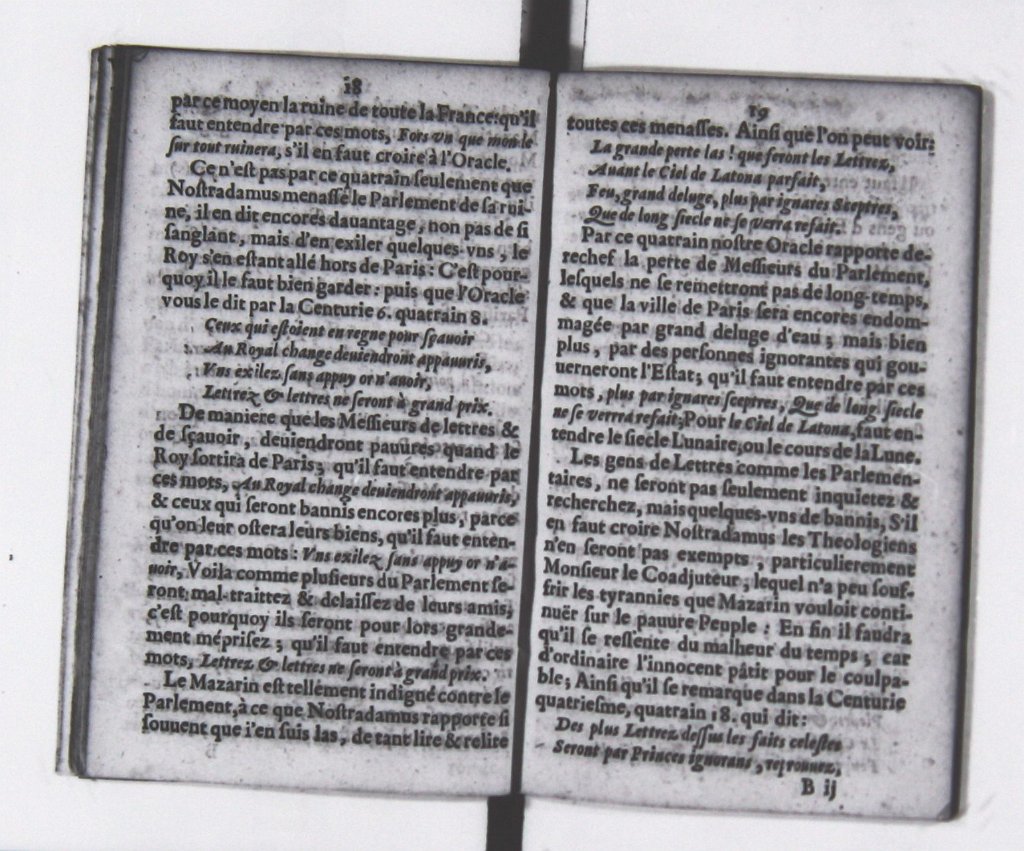 18
par ce moyen la ruine de toute la France: qu'il
faut entendre par ces mots, Fors vn que mon le
sur tout ruinera, s'il en faut croire à l'Oracle.
Ce n'est pas par ce quatrain seulement que
Nostradamus menasse le Parlement de sa rui-
ne, il en dit encores dauantage, non pas de si
sanglant, mais d'en exiler quelques-vns, le
Roy s'en estant allé hors de Paris: C'est pour-
quoy il le faut bien garder: puis que l'Oracle
vous le dit par la Centurie 6. quatrain 8.
Ceux qui estoient en regne pour sçauoir
Au Royal change deuiendront appauuris,
Vns exilez sans appuy or n'auoir,
Lettrez & lettres ne seront à grand prix.
De maniere que les Messieurs de lettres &
de sçauoir, deuiendront pauures quand le
Roy sortira de Paris; qu'il faut entendre par
ces mots, Au Royal change deuiendront appauuris,
& ceux qui seront bannis encores plus, parce
qu'on leur ostera leurs biens, qu'il faut enten-
dre par ces mots: Vns exilez sans appuy or n'a-
uoir, Voila comme plusieurs du Parlement se-
ront mal-traittez & delaissez de leurs amis,
c'est pourquoy ils seront pour lors grande-
ment méprisez; qu'il faut entendre par ces
mots, Lettrez & lettres ne seront à grand prix.
Le Mazarin est tellement indigné contre le
Parlement, à ce que Nostradamus rapporte si
souuent que i'en suis las, de tant lire & relire
19
toutes ces menasses. Ainsi que l'on peut voir:
La grande perte las! que feront les Lettrez,
Auant le Ciel de Latona parfait,
Feu, grand deluge, plus par ignares Sceptres,
Que de long siecle ne se verra refait.
Par ce quatrain nostre Oracle rapporte de-
rechef la perte de Messieurs du Parlement,
lesquels ne se remettront pas de long-temps,
& que la ville de Paris sera encores endom-
magée par grand deluge d'eau; mais bien
plus, par des personnes ignorantes qui gou-
uerneront l'Estat; qu'il faut entendre par ces
mots, plus par ignares sceptres, Que de long siecle
ne se verrra refait; Pour le Ciel de Latona, faut en-
tendre le siecle Lunaire, ou le cours de la Lune.
Les gens de Lettres comme les Parlemen-
taires, ne seront pas seulement inquietez &
recherchez, mais quelques-vns de bannis, S'il
en faut croire Nostradamus les Theologiens
n'en seront pas exempts, particulierement
Monsieur le Coadjuteur, lequel n'a peu souf-
frir les tyrannies que Mazarin vouloit conti-
nuër sur le pauure Peuple: En fin il faudra
qu'il se ressente du malheur du temps; car
d'ordinaire l'innocent pâtit pour le coulpa-
ble; Ainsi qu'il se remarque dans la Centurie
quatriesme, quatrain 18. qui dit:
Des plus Lettrez dessus les faits celestes
Seront par Princes ignorans, reprouuez,
B ij